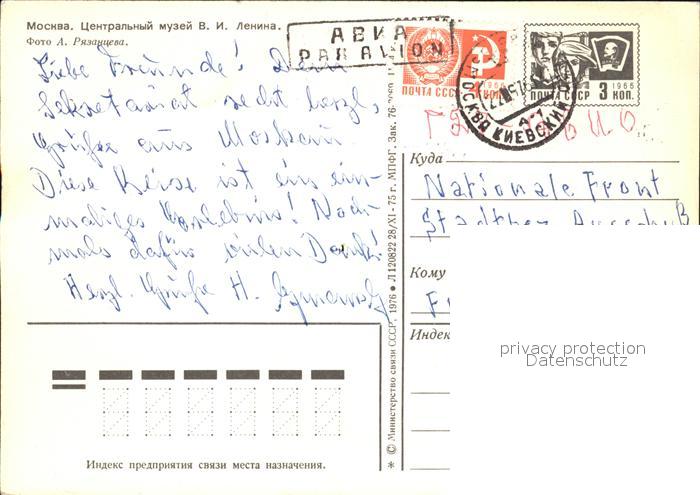 Москва. Центральный музей В. И. Ленина.
Фото А. Рязанцева.
АВИА
PAR AVION
ПОЧТА СССР
1966
ПОЧТА СССР 3 КОП.
МОСКВА КИЕВСКИЙ
Liebe Freunde! Dem
Sekretariat recht herzl.
Grüße aus Moskau.
Diese Reise ist ein ein-
maliges Erlebnis! Noch-
mals dafür vielen Dank!
Herzl. Grüße H.
Куда
Nationale Front
Кому
Индекс
© Министерство связи СССР, 1976 • Л 120822 28/XI-75 г. МПФГ. Зак. 76-
privacy protection
Datenschutz
Индекс предприятия связи места назначения.